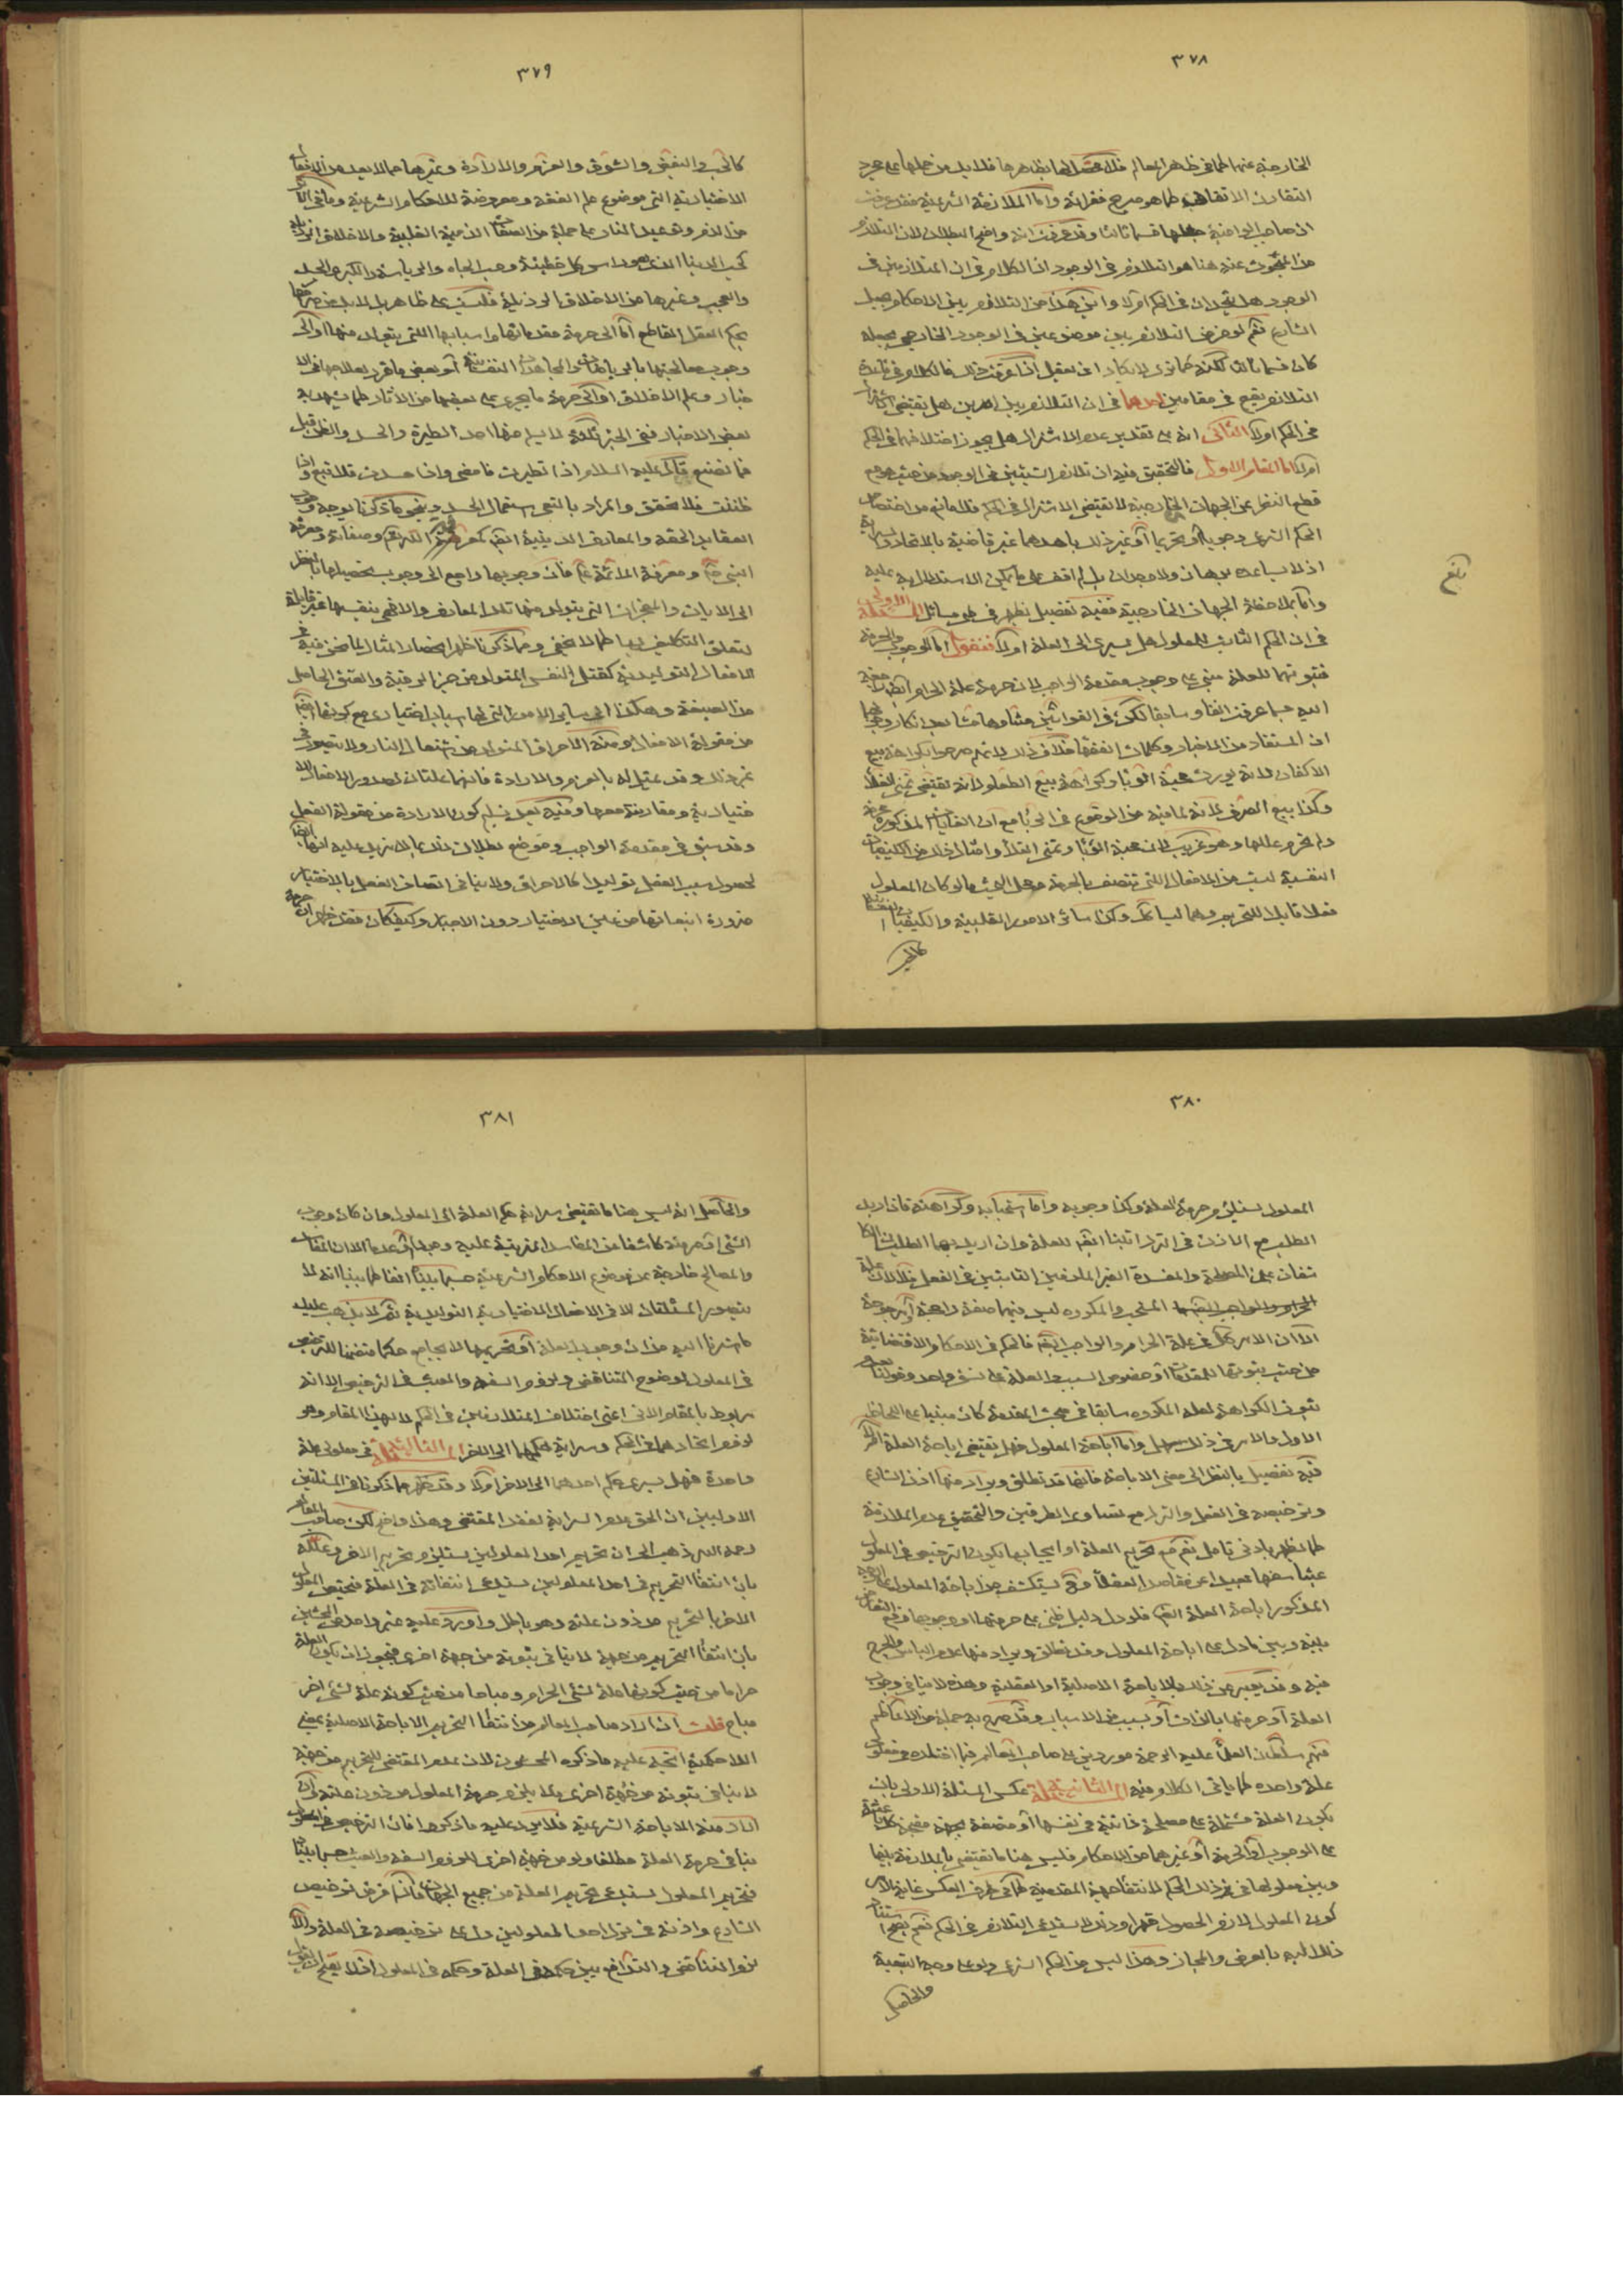 ٣٧٨
الخارجية عنها كما في ظاهر المعالم فلا محصل لها بظاهرها فلا بد من حملها على مجرد
التقارن الاتفاقي كما هو صريح فقراته واما الملازمة الشرعية فقد عرفت
ان صاحب الوافية جعلها قسما ثالثا وقد عرفت انه واضح البطلان لان التلازم
المبحوث عنه هنا هو التلازم في الوجود اذ الكلام في ان المتلازمين في
الوجود هل يتحدان في الحكم أم لا واين هذا من التلازم بين الاحكام بجعل
الشارع نعم لو فرض التلازم بين موضوعين في الوجود الخارجي بجعله
كان قسما ثالثا لكنه كما ترى لا يكاد ان يعقل اذا عرفت ذلك فالكلام في قاعدة
التلازم يقع في مقامين احدهما في ان التلازم بين امرين هل يقتضي
في الحكم اولا الثاني انه على تقدير عدم الاشتراك هل يجوز اختلافهما في الحكم
ام لا اما المقام الاول فالتحقيق فيه ان تلازم الشيئين في الوجود من حيث هو مع
قطع النظر عن الجهات الخارجية لا يقتضي الاشتراك في الحكم فلا مانع من اختصاص
الحكم الشرعي وجوبا أو تحريما أو غير ذلك باحدهما غير قاضية بالاتحاد والسراية
اذ لا يساعده برهان ولا وجدان بل لم اقف على ما يمكن الاستدلال به عليه
واما بملاحظة الجهات الخارجية ففيه تفصيل يظهر في طي مسائل المسئلة الاولى
في ان الحكم الثابت للمعلول هل يسري الى العلة اولا فنقول اما الوجوب والحرمة
فثبوتهما للعلة مبني على وجوب مقدمة الواجب لان حرمة علة الحرام
اليه كما عرفت انفا وسابقا لكن في القوانين
ان المستفاد من الاخبار وكلمات الفقهاء خلاف ذلك لانهم صرحوا بكراهة بيع
الاكفان لانه يورث محبة الوباء وكراهة بيع الطعام لانه يقتضي تمني الغلاء
وكذا بيع الصرف لانه لما فيه من الوقوع في الربا مع ان الغايات المذكورة
ولم تحرم عللها وهو غريب لان محبة الوباء وتمني الغلاء وامثال ذلك من الكيفيات
النفسية ليست من الافعال التي تتصف بالحرمة ومحل البحث ما لو كان المعلول
فعلا قابلا للتحريم وهما ليسا كذلك وكذا سائر الامور القلبية والكيفيات النفسانية
كالحب
بلغ
٣٧٩
كالحب والبغض والشوق والعزم والارادة وغيرها مما لا يعد من الافعال
الاختيارية التي موضوع علم الفقه ومعروضة للاحكام الشرعية وما في الآثار
من الذم وتوعيد النار على جملة من الصفات الذميمة القلبية والاخلاق الرذيلة
كحب الدنيا الذي هو راس كل خطيئة وحب الجاه والرياسة والكبر والحسد
والعجب وغيرها من الاخلاق الرذيلة فليس على ظاهره بل لا بد من صرفها
بحكم العقل القاطع اما الى حرمة مقدماتها واسبابها التي يتولد منها او الى
وجوب معالجتها بالرياضات والمجاهدات النفسانية أو بعض ما قرر لعلاجها في الا
خبار وعلم الاخلاق او الى حرمة ما يجري على بعضها من الآثار كما يشهد به
بعض الاخبار ففي الخبر ثلثة لا يسلم منها احد الطيرة والحسد والظن قيل
فما نصنع قال عليه السلام اذا تطيرت فامض واذا حسدت فلا تبغ واذا
ظننت فلا تحقق والمراد بالبغي استعمال الحسد وبنحو ما ذكرنا يوجه وجوب
العقايد الحقة والمعارف الدينية ايضا كمعرفة الله تعالى وصفاته ومعرفة
النبي ص ومعرفة الائمة ع فان وجوبها راجع الى وجوب تحصيلها بالنظر
الى الايات والمعجزات التي يتولد منها تلك المعارف والا فهي بنفسها غير قابلة
لتعلق التكليف بها كما لا يخفى ومما ذكرنا ظهر انحصار المثال لما نحن فيه في
الافعال التوليدية كقتل النفس المتولد من حز الرقبة والعتق الحاصل
من الصيغة وهكذا الى ساير الامور التي لها اسباب اختيارية مع كونها ايضا
من مقولة الافعال ومنه الاحراق المتولد من القائها في النار ولا يتصور في
غير ذلك وقد يمثل له بالعزم والارادة فانهما علتان لصدور الافعال الا
ختيارية ومقارنة معها وفيه بعد تسليم كون الارادة من مقولة الفعل
وقد سبق في مقدمة الواجب وتوضيح بطلان ذلك بما لا مزيد عليه انها ايضا
لحصول سبب الفعل توليدا كالاحراق ولا ينافي اتصاف الفعل بالاختيار
ضرورة انبعاثها من عين الاختيار دون الاجبار وكيف كان فقد ظهر ان حرمة
٣٨٠
المعلول يستلزم حرمة العلة وكذا وجوبه واما استحبابه وكراهته فاذا اريد
الطلب مع الاذن في الترك ثبتا ايضا للعلة وان اريد بهما الطلبان الكا
شفان عن المصلحة والمفسدة الغير الملزمتين الثابتتين في الفعل فلا لان علة
المستحب والمكروه ليس فيهما صفة راجحة أو مرجوحة
الا ان الامر كك في علة الحرام والواجب ايضا فالحكم في الاحكام الاقتضائية
من حيث ثبوتها للمقدمة أو خصوص السبب والعلة على نسق واحد وقولنا بعدم
ثبوت الكراهة لعلة المكروه سابقا في مبحث المقدمة كان مبنيا على اللحاظ
الاول والامر في ذلك سهل واما اباحة المعلول فهل يقتضي اباحة العلة ام لا
فيه تفصيل بالنظر الى معنى الاباحة فانها قد تطلق ويراد منها اذن الشارع
وترخيصه في الفعل والترك مع تساوي الطرفين والتحقيق عدم الملازمة
كما يظهر بادنى تامل نعم مع تحريم العلة او ايجابها يكون الترخيص في المعلول
عبثا سفها بعيدا عن مقاصد العقلاء وح يستكشف من اباحة المعلول على الوجه
المذكور اباحة العلة ايضا فلو دل دليل ظني على حرمتها او وجوبها وقع التعارض
بينه وبين ما دل على اباحة المعلول وقد تطلق ويراد منها عدم الباس والحرج
فيه وقد يعبر عن ذلك بالاباحة الاصلية او العقلية وهذه لا ينافي وجوب
العلة أو حرمتها بالذات أو بسبب من الاسباب وقد صرح به جملة من الاعاظم
منهم سلطان العلماء عليه الرحمة موردين على صاحب المعالم فيما اختاره في معلولي
علة واحدة كما ياتي الكلام فيه المسئلة الثانية عكس المسئلة الاولى بان
يكون العلة مشتملة على مصلحة ذاتية في نفسها أو متصفة بجهة مقبحة كلا باعثة
على الوجوب أو الحرمة أو غيرهما من الاحكام فليس هنا ما يقتضي بالملازمة بينها
وبين معلولها في غير ذلك الحكم لانتفاء جهة المقدمية كما في طرف العكس غاية الامر
كون المعلول لازم الحصول قهرا وذلك لا يستدعي التلازم في الحكم نعم يصح استناد
ذلك اليه بالعرض والمجاز وهذا ليس من الحكم الشرعي ولو على وجه التبعية
والحاصل
٣٨١
والحاصل انه ليس هنا ما يقتضي سراية حكم العلة الى المعلول وان كان وجوب
الشئ أو حرمته كاشفا عن المفاسد المترتبة عليه وجودا أو عدما الا ان المفاسد
والمصالح خارجة عن موضوع الاحكام الشرعية حسبما بينا انفا كما بينا انه لا
يتصور المسئلتان الا في الافعال الاختيارية التوليدية ثم لا يذهب عليك
ما اشرنا اليه من ان وجوب العلة أو تحريمها لا يجامع حكما متضمنا للترخيص
في المعلول لوضوح التناقض ولزوم السفه والعبث في الترخيص الا انه
مربوط بالمقام الاتي اعني اختلاف المتلازمين في الحكم لا بهذا المقام وهو
لزوم اتحادهما في الحكم وسراية حكمهما الى الاخر المسئلة الثالثة في معلولي علة
واحدة فهل يسري حكم احدهما الى الاخر اولا وقد ظهر مما ذكرنا في المسئلتين
الاوليين ان الحق عدم السراية لفقد المقتضي وهذا واضح لكن صاحب المعالم
رحمه الله ذهب الى ان تحريم احد المعلولين يستلزم تحريم الاخر وعلله
بان انتفاء التحريم في احد المعلولين يستدعي انتفائه في العلة فيختص المعلول
الاخر بالتحريم من دون علته وهو باطل واورد عليه غير واحد من المحشين
بان انتفاء التحريم من جهة لا ينافي ثبوته من جهة اخرى فيجوز ان يكون العلة
حراما من حيث كونها علة لشئ الحرام ومباحا من حيث كونه علة لشئ اخر
مباح قلت ان اراد صاحب المعالم من انتفاء التحريم الاباحة الاصلية بمعنى
اللاحكمية اتجه عليه ما ذكره المحشون لان عدم المقتضي للتحريم من جهة
لا ينافي ثبوته من جهة اخرى فلا يلزم حرمة المعلول من دون علته وان
اراد منه الاباحة الشرعية فلا يرد عليه ما ذكروا فان الترخيص في المعلول
ينافي حرمة العلة مطلقا ولو من جهة اخرى للزوم السفه والعبث حسبما بينا
فتحريم المعلول يستدعي تحريم العلة من جميع الجهات فاذا فرض ترخيص
الشارع واذنه في ترك احد المعلولين دل على ترخيصه في العلة والا
لزم التناقض والتدافع بين حكمه في العلة وحكمه في المعلول اذ لا يعقل